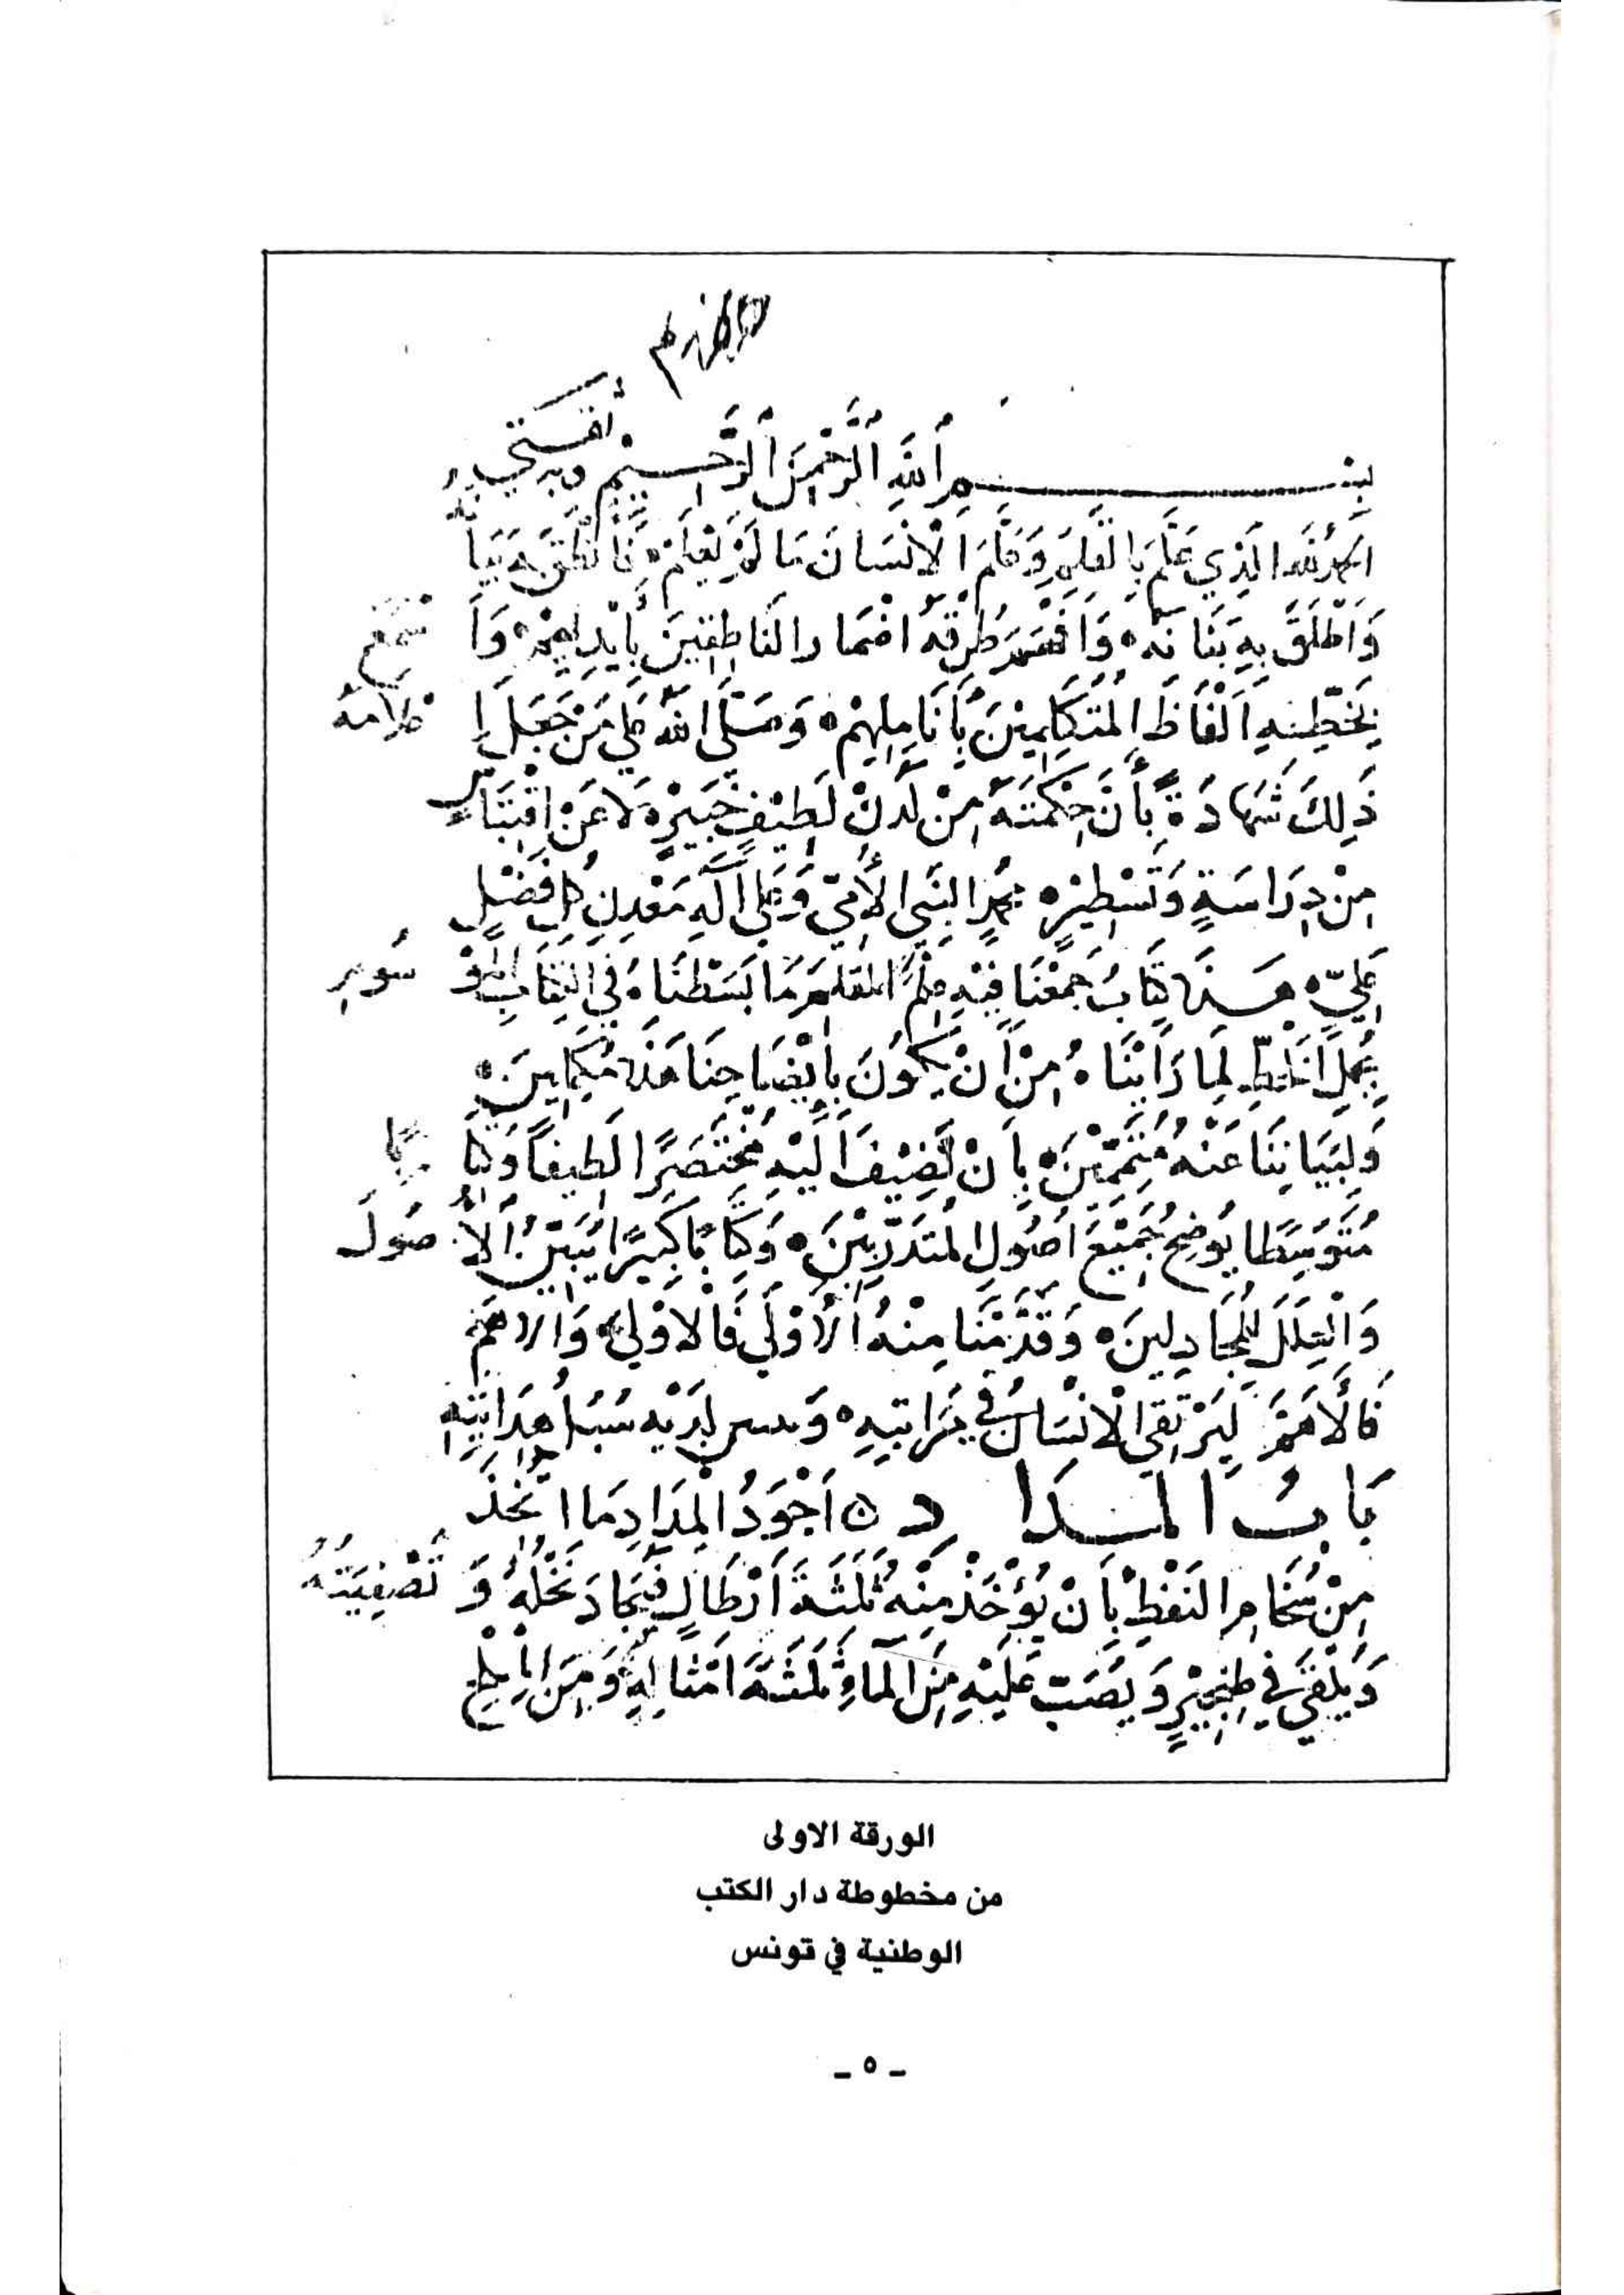 بِسْمِ اللَّهِ الرَّحْمَنِ الرَّحِيمِ وبه
الحمد لله الذي عَلَّمَ بِالْقَلَمِ وَعَلَّمَ الْإِنْسَانَ مَا لَمْ يَعْلَمْ ه فَأَنْطَقَ بَيَانَهُ
وَأَطْلَقَ بِهِ بَنَانَهُ ه النَّاطِقِينَ بِأَيْدِيهِمْ ه وَا سْمَعَ
أَلْفَاظَ الْمُتَكَلِّمِينَ بِأَنَامِلِهِمْ ه وَصَلَّى اللهُ عَلَى مَنْ جَعَلَ إ ظلامه
ذَلِكَ شَهَادَةً بِأَنَّ حِكْمَتَهُ مِنْ لَدُنْ لَطِيفٍ خَبِيرٍ ه لَا عَنْ اقْتِبَاسٍ
مِنْ دِرَاسَةٍ وَتَسْطِيرٍ ه مُحَمَّدٍ النَّبِيِّ الْأُمِّيِّ وَعَلَى آلِهِ مَعْدِنِ كُلِّ فَضْلٍ
عَلِيٍّ ه هذا كِتَابٌ جَمَعْنَا فِيهِ مَا بَسَطْنَاهُ فِي الْكِتَابِ
الْخَطِّ لِمَا رَأَيْنَاهُ مِنْ أَنْ يَكُونَ بِإِيْضَاحِنَا هَذَا مُكَمِّلِينَ ه
وَلِبَيَانِنَا عَنْهُ مُتَمِّمِيْنَ ه بِأَنْ نُضِيْفَ إِلَيْهِ مُخْتَصَرًا لَطِيفاً وَكِتَا بًا
مُتَوَسِّطًا يُوضِحُ جَمِيْعَ أُصُولِ الْمُتَدَرِّبِيْنَ ه وَكِتَابًا كَبِيْرًا يُبَيِّنُ الْأُ صُولَ
وَالْعِلَلَ لِلْمُجَادِلِينَ ه وَقَدَّمْنَا مِنْهُ الْأَوْلَى فَالْأَوْلَى ه وَالْأَهَمَّ
فَالْأَهَمَّ لِيَرْتَقِيَ الْإِنْسَانُ فِي مَرَاتِبِهِ ه لَدَيْهِ سُبُلُ هِدَايَتِهِ
بَابُ الْمِدَادِ ه أَجْوَدُ الْمِدَادِ مَا اتُّخِذَ
مِنْ سُخَامِ النَّفْطِ بِأَنْ يُؤْخَذَ مِنْهُ ثَلَثَةَ أَرْطَالٍ فَيُجَادَ نَخْلُهُ وَ تَصْفِيَتُهُ
وَيُلْقَى فِي طِنْجِيْرٍ وَيُصَبّ عَلَيْهِ مِنَ الْمَاءِ ثَلَثَةَ أَمْثَالِهِ وَمِنَ الْمِلْحِ
الورقة الاولى
من مخطوطة دار الكتب
الوطنية في تونس
- ٥ -